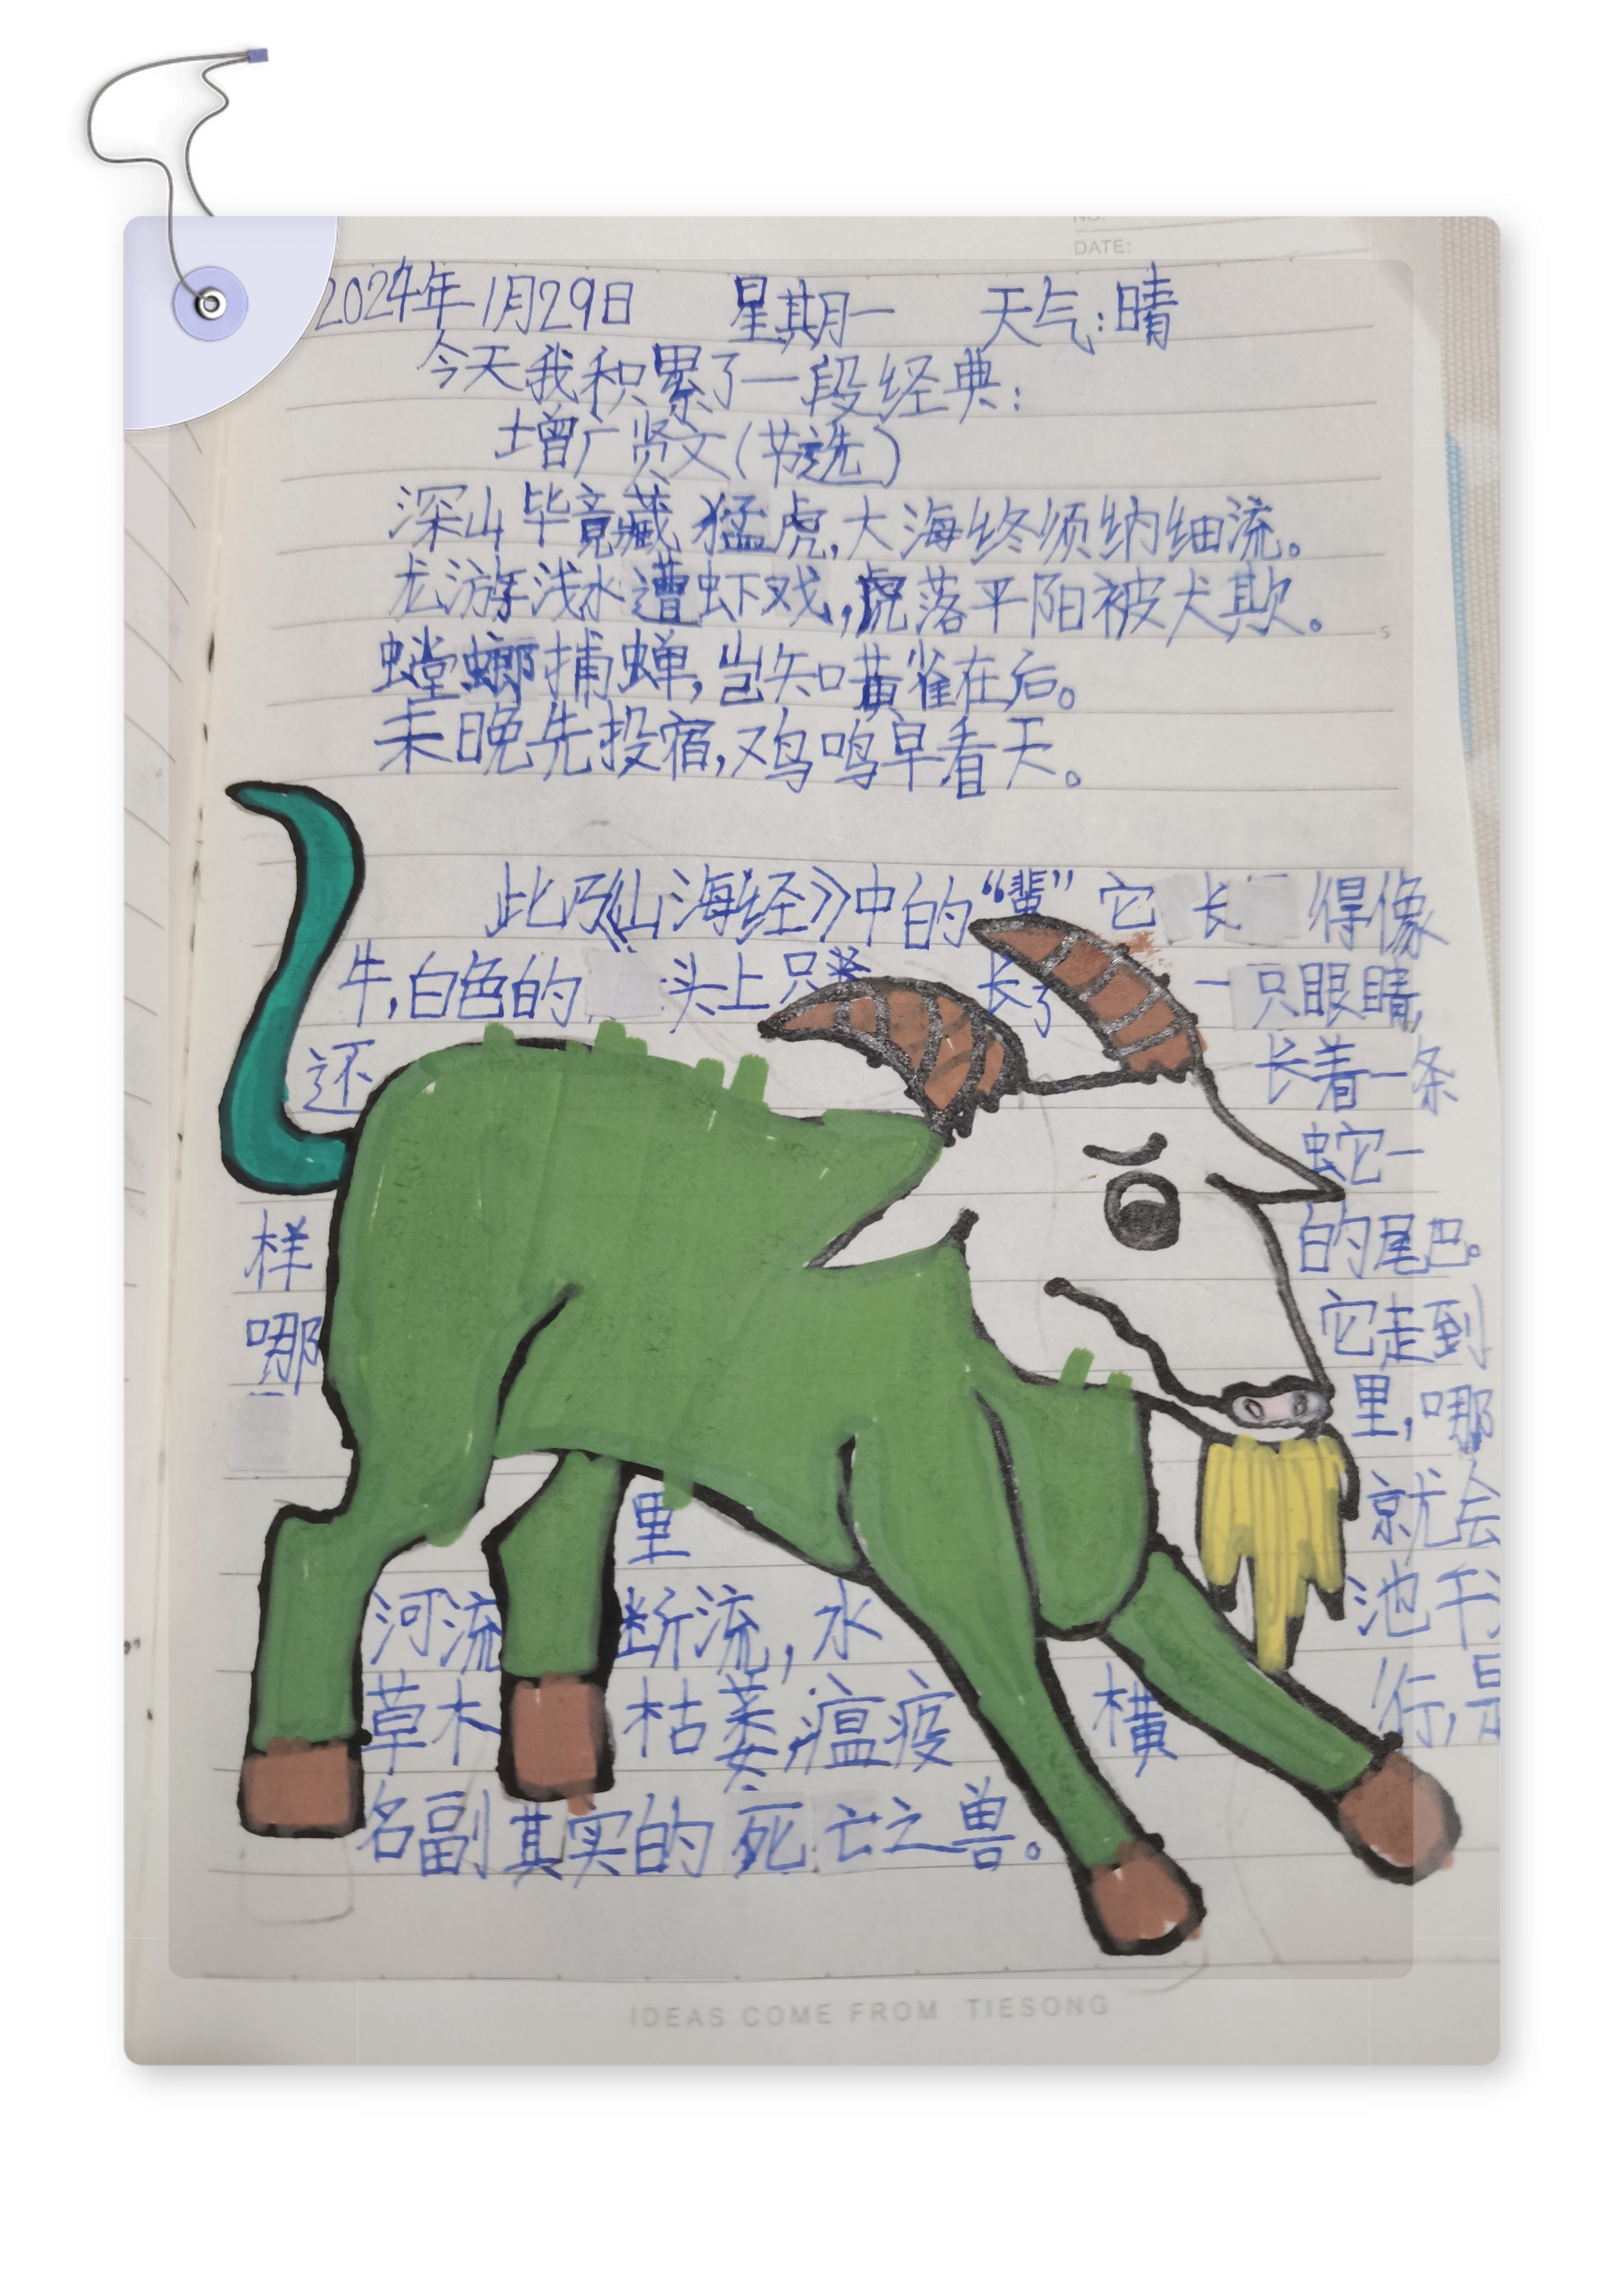 NO.
DATE:
2024年1月29日 星期一 天气:晴
今天我积累了一段经典:
增广贤文(节选)
深山毕竟藏猛虎,大海终须纳细流。
龙游浅水遭虾戏,虎落平阳被犬欺。
螳螂捕蝉,岂知黄雀在后。
未晚先投宿,鸡鸣早看天。
此乃《山海经》中的“蜚”它长得像
牛,白色的头上只 长了一只眼睛,
还 长着一条
蛇一
样 的尾巴。
它走到
哪 里,哪
里 就会
河流断流,水 池干
草木枯萎,瘟疫横行,是
名副其实的死亡之兽。
IDEAS COME FROM TIESONG